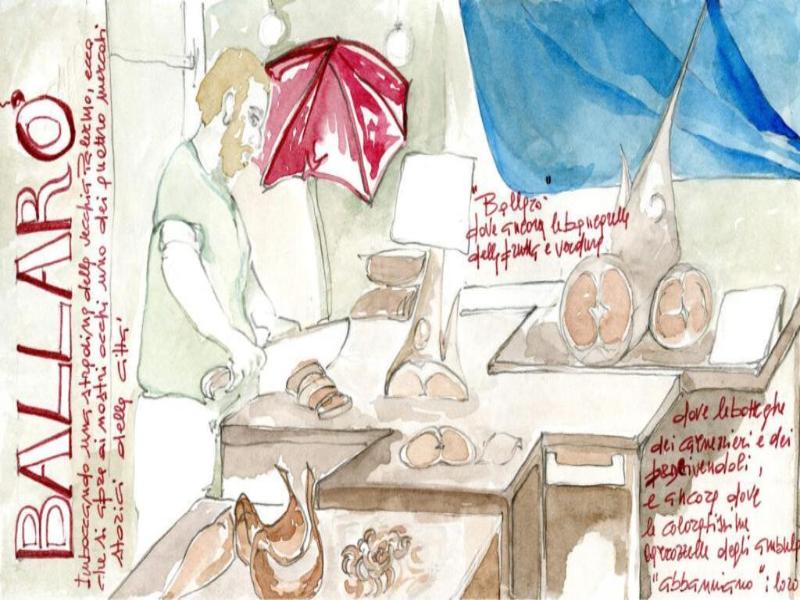 BALLARÒ
Imboccando una stradina della vecchia Palermo, ecco
che si apre ai nostri occhi uno dei quattro mercati
storici della città
"Ballarò"
dove ancora le bancarelle
della frutta e verdura
dove le botteghe
dei carnezzieri e dei
pescivendoli,
e ancora dove
le coloratissime
carrozzelle degli ambula
"abbanniano": loro